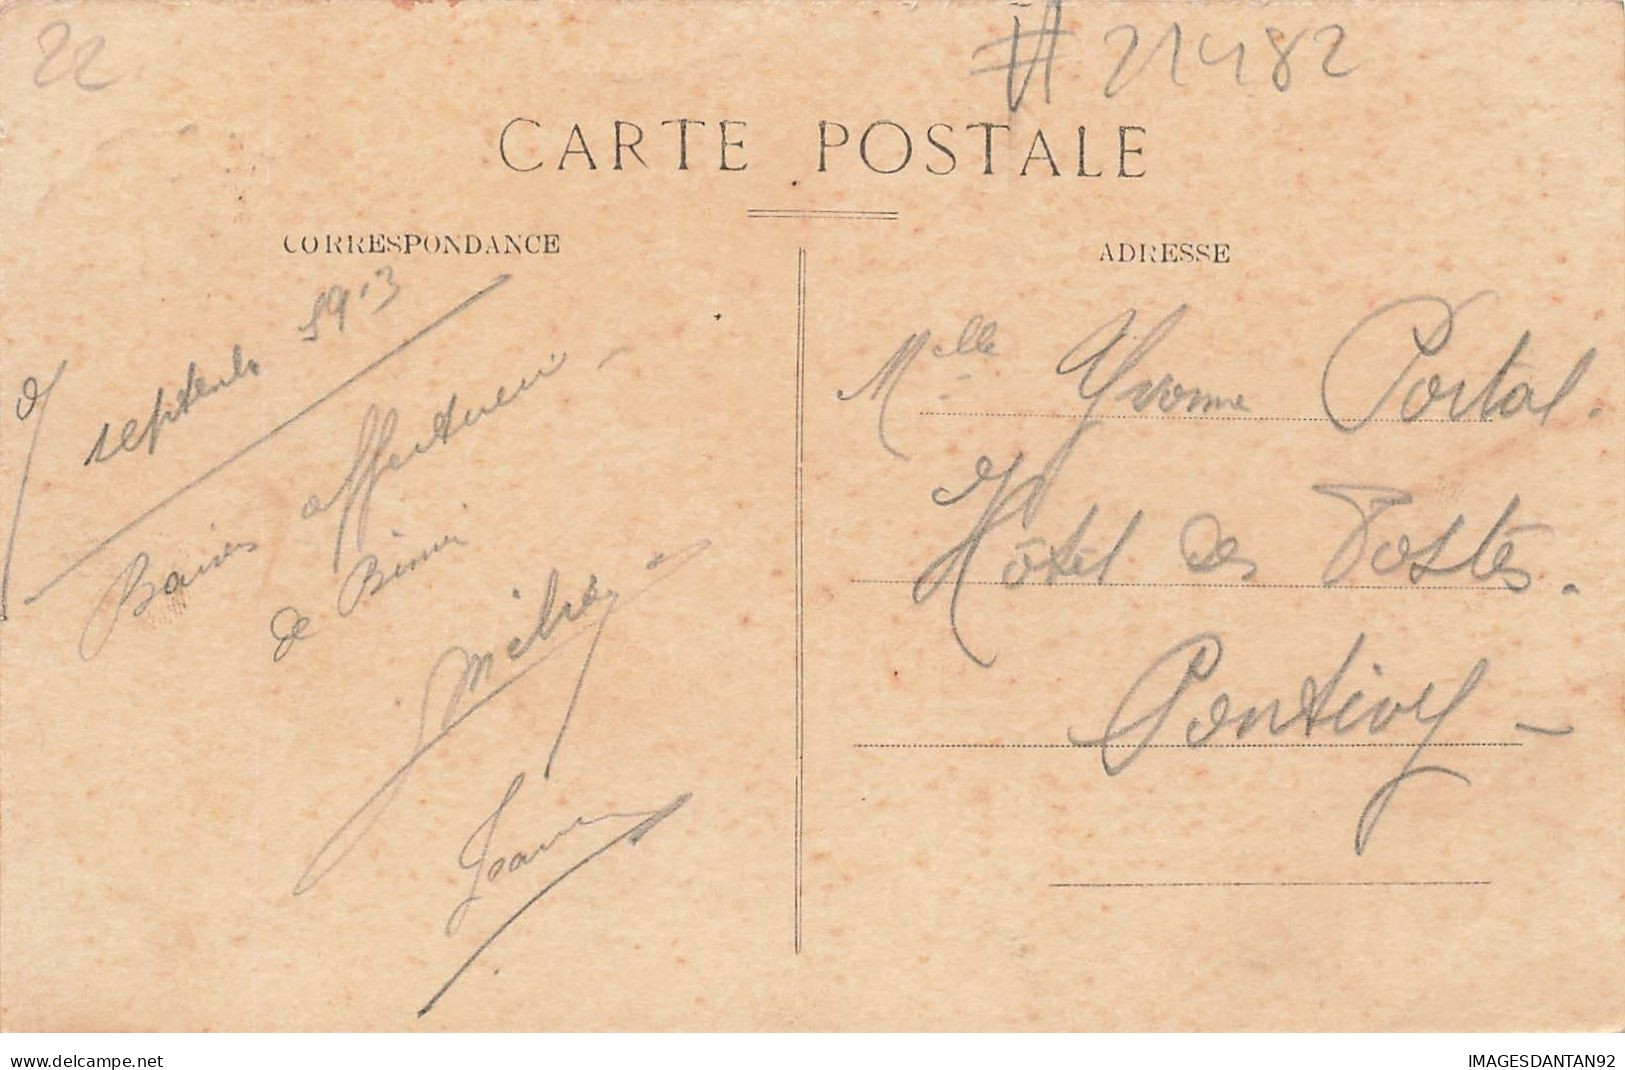 22
# 21482
CARTE POSTALE
CORRESPONDANCE
ADRESSE
septembre 1913
affectueux
de
Jeanne
Melle Yvonne Portal.
Hôtel des Postes.
Pontivy –
www.delcampe.net
IMAGESDANTAN92